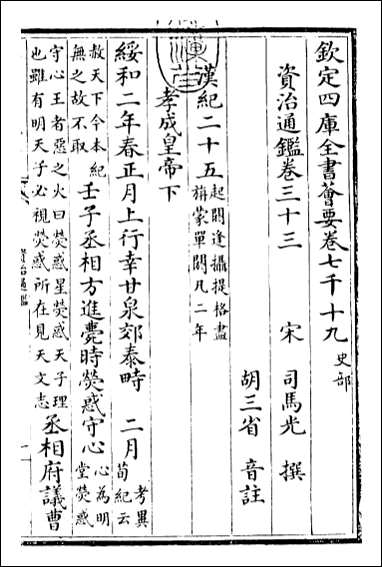 欽定四庫全書薈要卷七千十九 史部
資治通鑑卷三十三 宋 司馬光 撰
胡三省 音註
漢紀二十五 起閼逢攝提格盡
旃蒙單閼凡二年
孝成皇帝下
綏和二年春正月上行幸甘泉郊泰畤 二月 考異
荀紀云
赦天下今本紀
無之故不取 壬子丞相方進薨時熒惑守心 心為明
堂熒惑
守心王者惡之火曰熒惑星熒惑天子理
也雖有明天子必視熒惑所在見天文志 丞相府議曹
資治通鑑